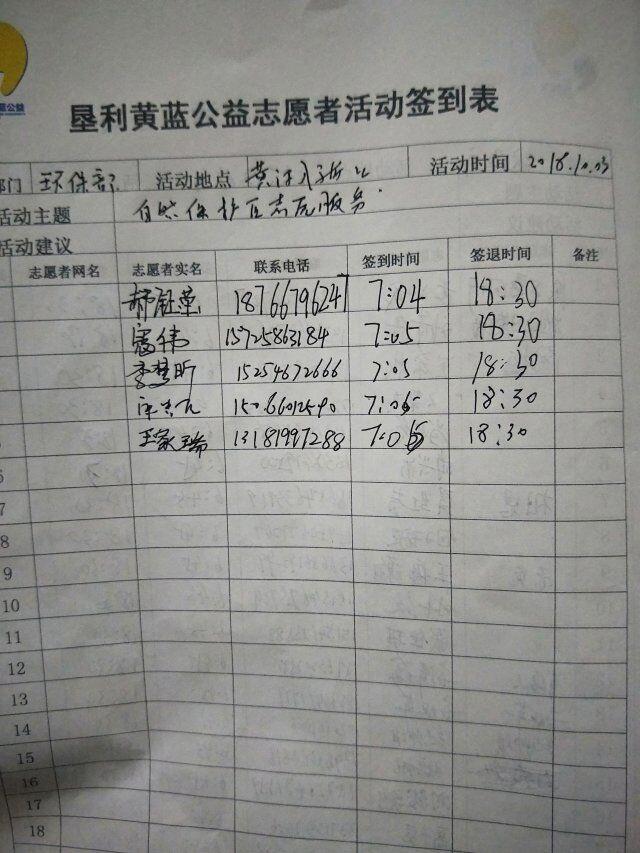 蓝公益
垦利黄蓝公益志愿者活动签到表
部门 环保部 活动地点 黄河入海口 活动时间 2018.10.03
活动主题 自然保护区志愿服务
活动建议
志愿者网名 志愿者实名 联系电话 签到时间 签退时间 备注
18766796247 7:04 18:30
15725863184 7:05 18:30
李慧昕 15254672666 7:05 18:30
15066012590 7:05 18:30
5 王家瑞 13181997288 7:05 18:30
6
7
8
9
10
11
12
13
14
15
16
17
18